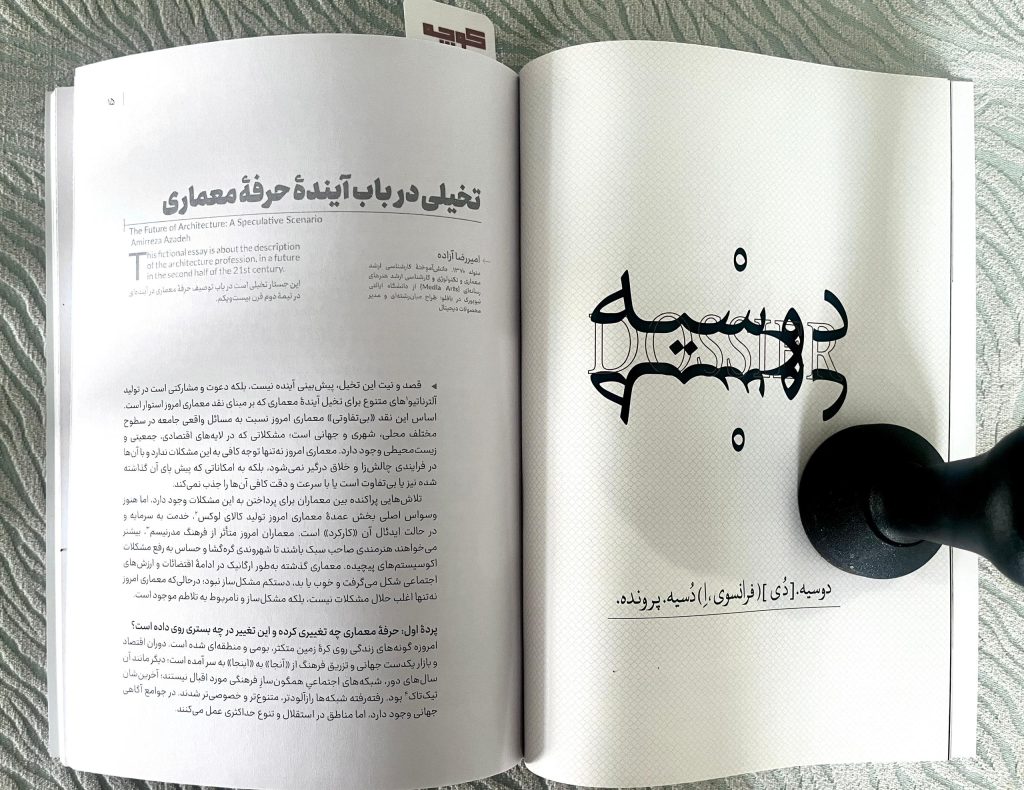 کوچه
دوسیه
DOSSIER
دوسیه
دوسیه. [ دُی ] ( فرانسوی، اِ) دُسیه. پرونده.
۱۵
تخیلی در باب آیندهٔ حرفهٔ معماری
The Future of Architecture: A Speculative Scenario
Amirreza Azadeh
This fictional essay is about the description
of the architecture profession, in a future
in the second half of the 21st century.
این جستار تخیلی است در باب توصیف حرفهٔ معماری در آینده‌ای
در نیمهٔ دوم قرن بیست‌ویکم.
امیررضا آزاده
متولد ۱۳۷۰. دانش‌آموختهٔ کارشناسی ارشد
معماری و تکنولوژی و کارشناسی ارشد هنرهای
رسانه‌ای (Media Arts) از دانشگاه ایالتی
نیویورک در بافلو؛ طراح میان‌رشته‌ای و مدیر
محصولات دیجیتال
◄ قصد و نیت این تخیل، پیش‌بینی آینده نیست، بلکه دعوت و مشارکتی است در تولید
آلترناتیوهای متنوع برای تخیل آیندهٔ معماری که بر مبنای نقد معماری امروز استوار است.
اساس این نقد «بی‌تفاوتی» معماری امروز نسبت به مسائل واقعی جامعه در سطوح
مختلف محلی، شهری و جهانی است؛ مشکلاتی که در لایه‌های اقتصادی، جمعیتی و
زیست‌محیطی وجود دارد. معماری امروز نه‌تنها توجه کافی به این مشکلات ندارد و با آن‌ها
در فرایندی چالش‌زا و خلاق درگیر نمی‌شود، بلکه به امکاناتی که پیش پای آن گذاشته
شده نیز یا بی‌تفاوت است یا با سرعت و دقت کافی آن‌ها را جذب نمی‌کند.
تلاش‌هایی پراکنده بین معماران برای پرداختن به این مشکلات وجود دارد، اما هنوز
وسواس اصلی بخش عمدهٔ معماری امروز تولید کالای لوکس، خدمت به سرمایه و
در حالت ایدئال آن «کارکرد» است. معماران امروز متأثر از فرهنگ مدرنیسم، بیشتر
می‌خواهند هنرمندی صاحب سبک باشند تا شهروندی گره‌گشا و حساس به رفع مشکلات
اکوسیستم‌های پیچیده. معماری گذشته به‌طور ارگانیک در ادامهٔ اقتضائات و ارزش‌های
اجتماعی شکل می‌گرفت و خوب یا بد، دستکم مشکل‌ساز نبود؛ درحالی‌که معماری امروز
نه‌تنها اغلب حلال مشکلات نیست، بلکه مشکل‌ساز و نامربوط به تلاطم موجود است.
پردهٔ اول: حرفهٔ معماری چه تغییری کرده و این تغییر در چه بستری روی داده است؟
امروزه گونه‌های زندگی روی کرهٔ زمین متکثر، بومی و منطقه‌ای شده است. دوران اقتصاد
و بازار یک‌دست جهانی و تزریق فرهنگ از «آنجا» به «اینجا» به سر آمده است؛ دیگر مانند آن
سال‌های دور، شبکه‌های اجتماعی همگون‌ساز فرهنگی مورد اقبال نیستند؛ آخرین‌شان
تیک‌تاک بود. رفته‌رفته شبکه‌ها رازآلودتر، متنوع‌تر و خصوصی‌تر شدند. در جوامع آگاهی
جهانی وجود دارد، اما مناطق در استقلال و تنوع حداکثری عمل می‌کنند.